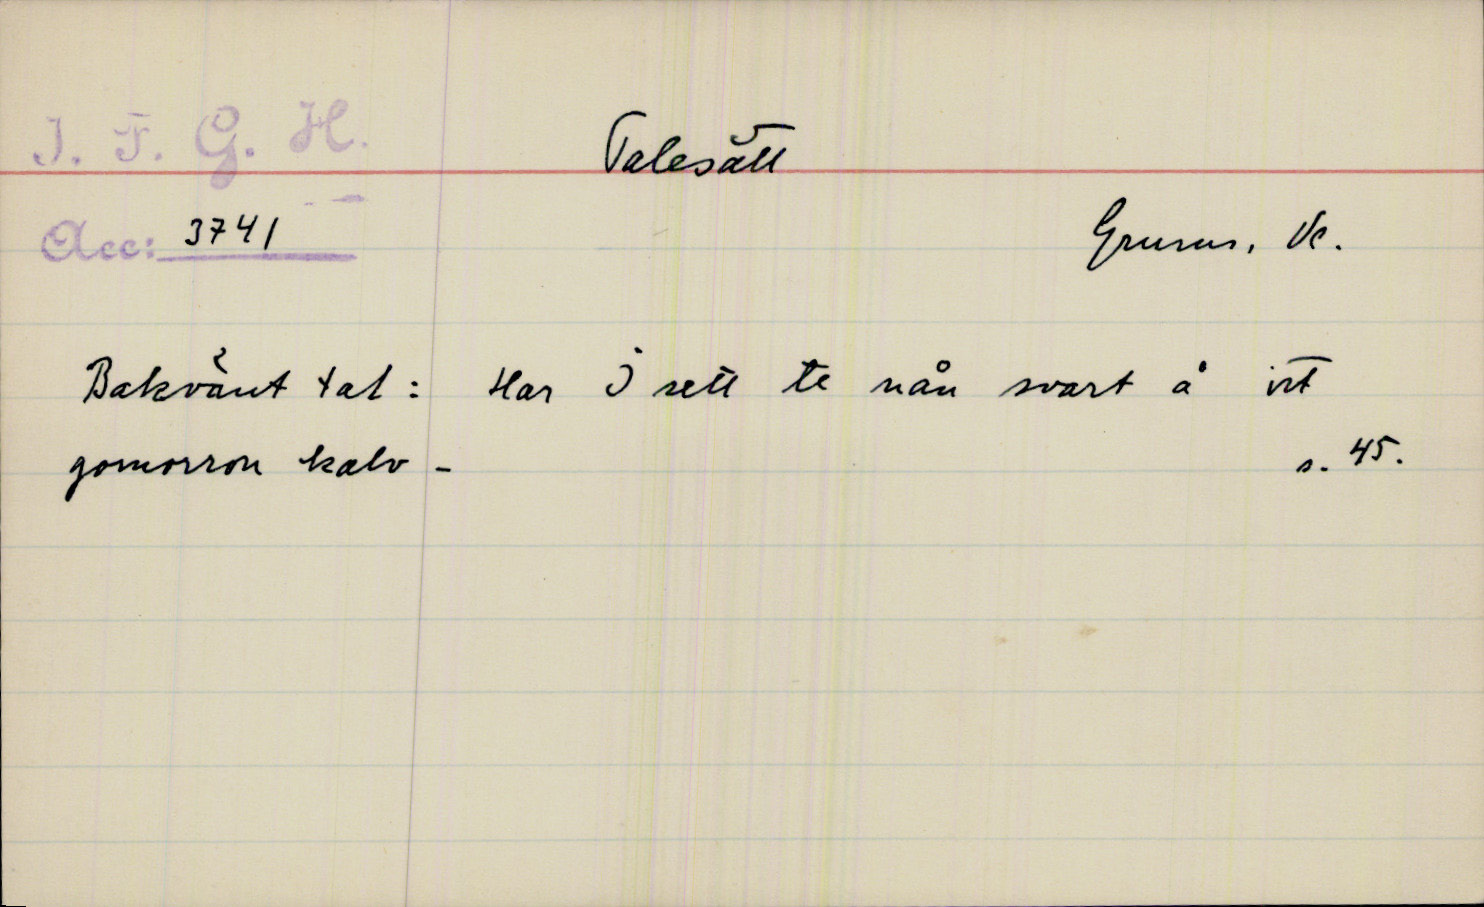 I. F. G. H.
Talesätt
Acc: 3741
Grums, Vr.
Bakvänt tal: Har I sett te nån svart å vit
gomorron kalv -
s. 45.